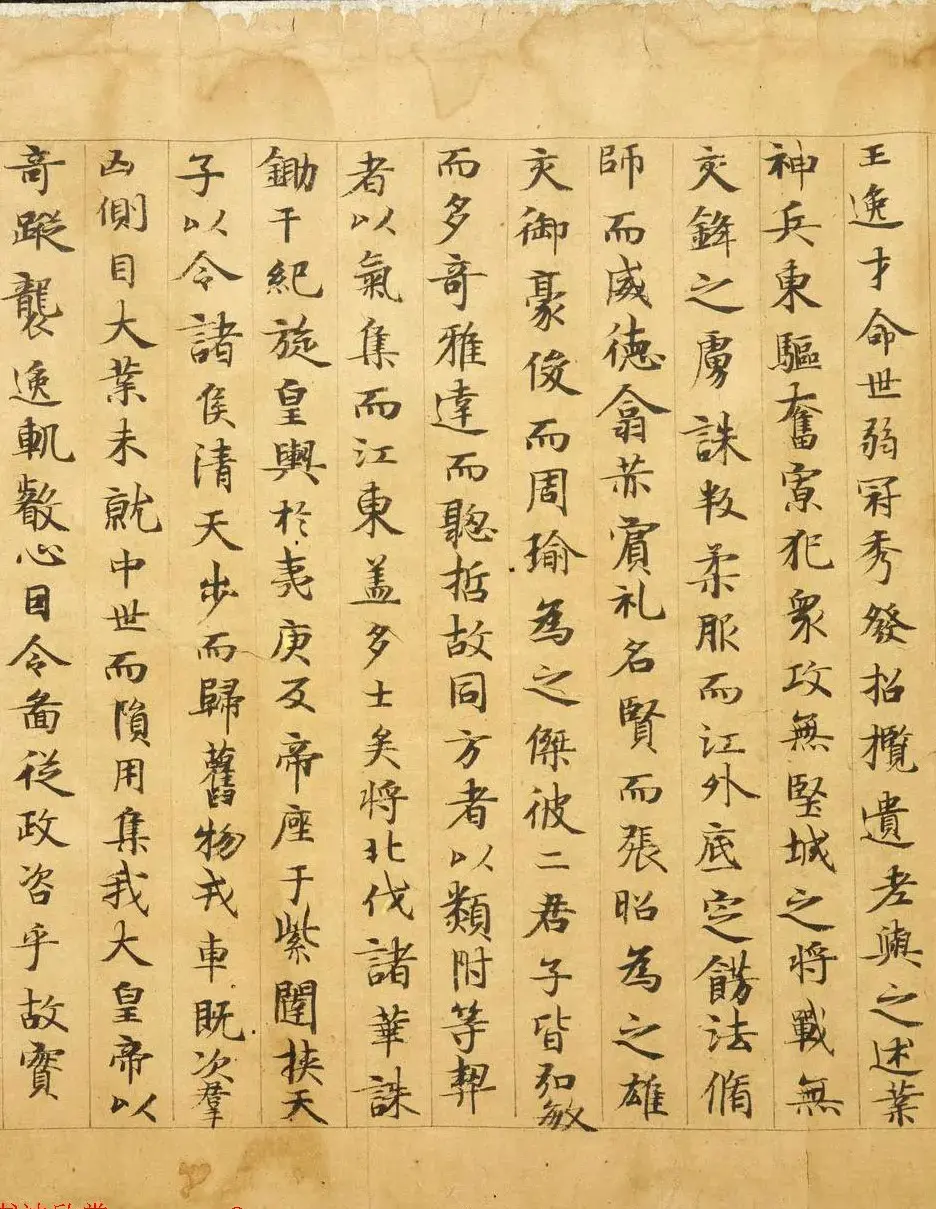 王逸才命世弱冠秀發招攬遺老與之述業
神兵東驅奮寡犯衆攻無堅城之將戰無
交鋒之虜誅叛柔服而江外底定餝法脩
師而威德翕赫賓礼名賢而張昭為之雄
交御豪俊而周瑜為之傑彼二君子皆弘敏
而多奇雅達而聰哲故同方者以類附等契
者以氣集而江東盖多士矣將北伐諸華誅
鋤干紀旋皇輿於夷庚反帝座于紫闥挟天
子以令諸侯清天步而歸舊物戎車既次羣
凶側目大業未就中世而隕用集我大皇帝以
奇蹤襲逸軌叡心因令啚從政咨乎故實